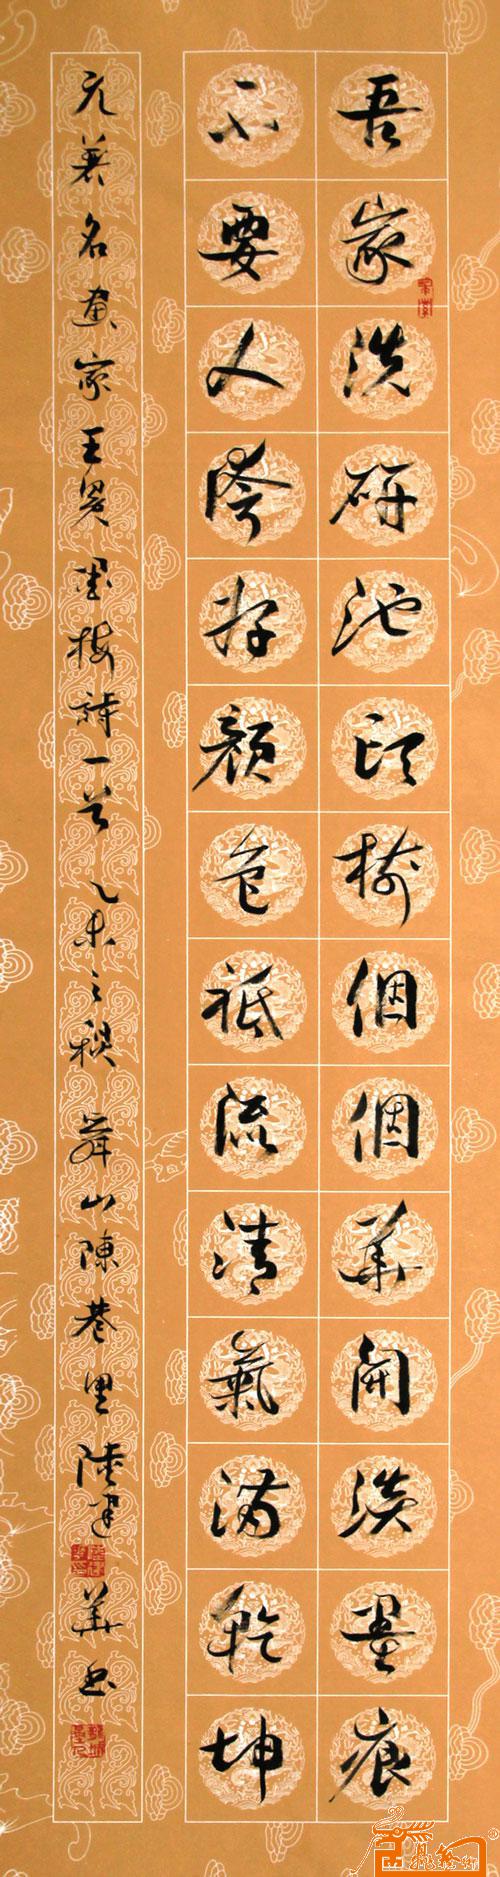 吾家洗研池頭樹個個華開淡墨痕
不要人誇好顏色祗流清氣滿乾坤
元著名畫家王冕墨梅詩一首乙未之秋舜山陳巷里陸建華書